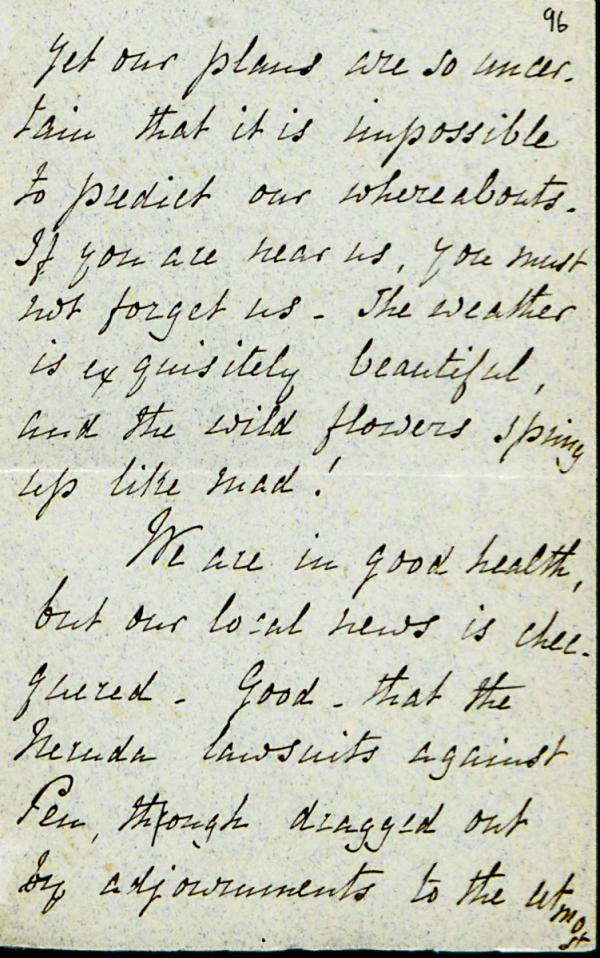 96
Yet our plans are so uncer-
tain that it is impossible
to predict our whereabouts.
If you are near us, you must
not forget us - The weather
is exquisitely beautiful,
and the wild flowers spring
up like mad!
We are in good health,
but our local news is chec-
quered - Good - that the
Neruda lawsuits against
Pen, though dragged out
by adjournments to the utmost